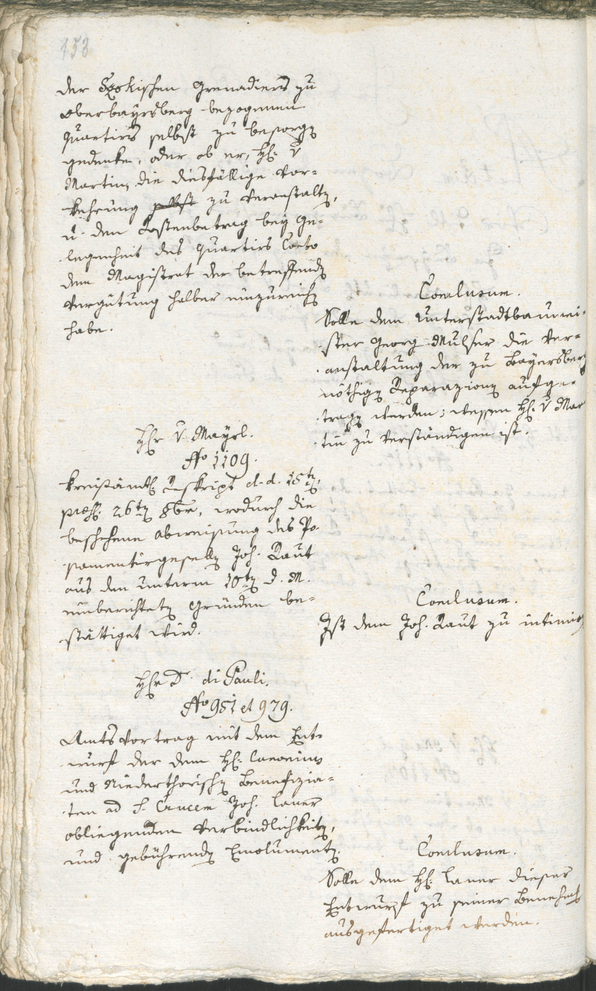 153
der Tyrolischen Grenadiers zu
Oberbayrsberg bezogenen
Quartiers selbst zu besorgen
gedenke, oder ob er, H. v
Martin, die diesfällige Vor-
kehrung zu veranstalten,
u. den Kostenbetrag bey Ge-
legenheit des Quartirs Conto
dem Magistrat der betreffenden
Vergütung halber einzureichen
habe.
Conclusum.
Solle dem Unterstadtbaumei-
ster Georg Mulser die Ver-
anstaltung der zu Bayersberg
nöthigen Reparazionen aufge-
tragen werden; wessen H. v Mar
tin zu verständigen ist.
Hr v. Mayrl.
No 1109.
Kreisämtl. Inskript d. d. 15ten,
præs. 26ten 8br, wodurch die
beschehene Abweisung des Po-
samentirgesellen Joh. Raut
aus den unterm 10ten d. M.
einberichteten Gründen be-
stättiget wird.
Conclusum.
Ist dem Joh. Raut zu intimiren
Hr D. di Pauli.
No 951 et 979.
Amtsvortrag mit dem Ent-
wurf der dem H. Canonicus
und Niederthorischen Benefizia-
ten ad S. Crucem Joh. Laner
obliegenden Verbindlichkeiten,
und gebührenden Emolumenten.
Conclusum.
Solle dem H. Laner dieser
Entwurf zu seiner Benehmung
ausgefertiget werden.